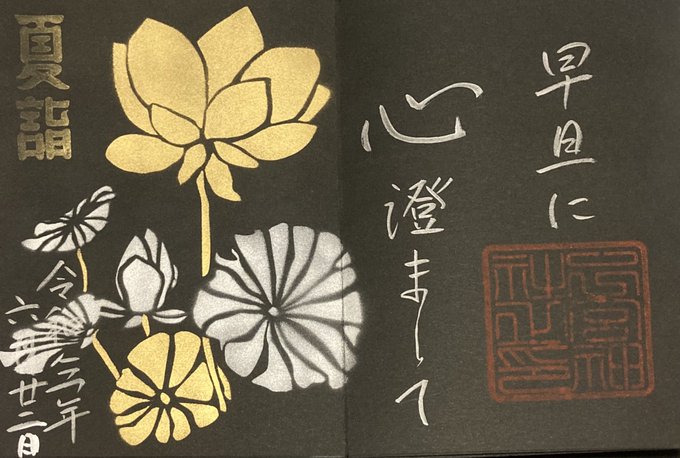 早旦に
心澄まして
夏詣
令和年
六月廿二日